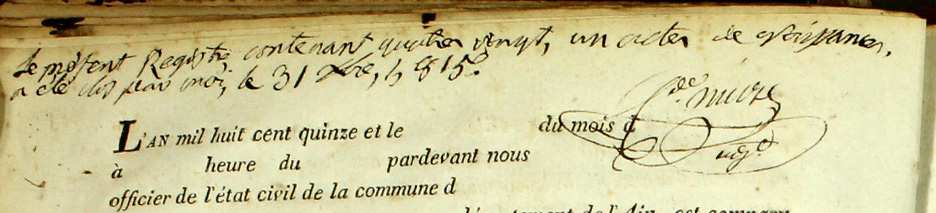 le présent Registre contenant quatre vingt un actes de naissances,
a été clos par moi, le 31 Xbre, 1815.
L'AN mil huit cent quinze et le du mois d
à heure du pardevant nous
officier de l'état civil de la commune d
département de l'Ain, est comparu